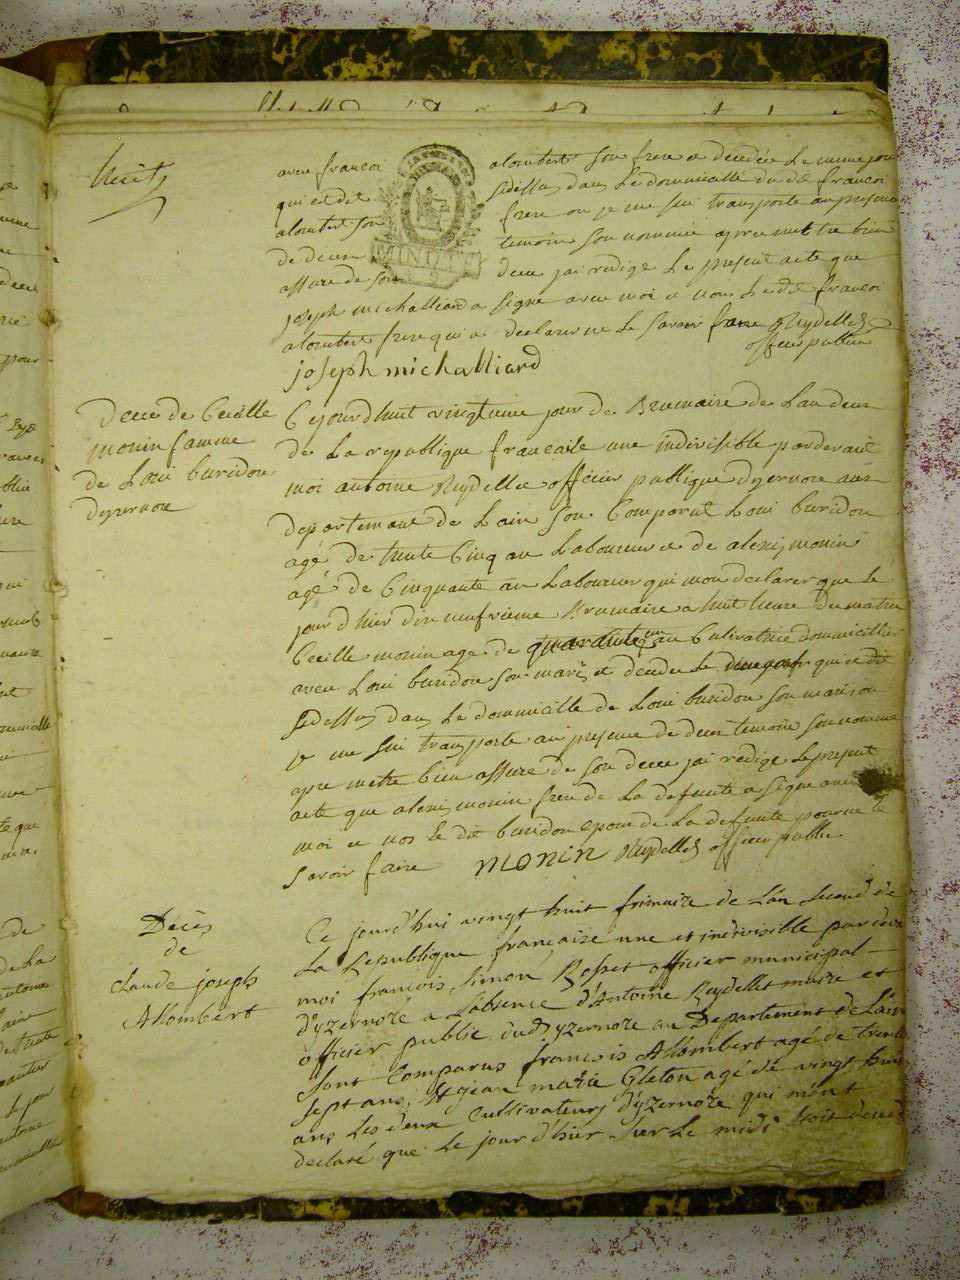 huit
avec francoi alombert son frere et decedée le meme jour
qui et dit sidessus dans le domicille du dt francoi
alombert son frere ou je me sui transporte au presence
de deux temoin son nommé apres mettre bien
assure de son dece jai redige le present acte que
joseph michalliard a signe avec moi et non le dt francoi
alombert frere qui a declarer ne le savoir faire Reydellet
officier publice
joseph michalliard
MINUTE
dece de Cecille
monin famme
de Loui buridon
dyzernore
Cejourdhuit vingtieme jour de Brumaire de Lan deux
de La republique francaise une indivisible pardevant
moi antoine Reydellet officier publique dyzernore
departemant de Lain son Comparut Loui buridon
agé de trente Cinq an Laboureur et de alexis monin
agé de Cinquante an Laboureur qui mon declarer que le
jour dhier dix neufvieme Brumaire a huit heure du matin
Cecille monin age de quarante un an Cultivatrice domicillier
avec Loui buridon son marÿ et decedee le qui et dit
sidessus dans Le domicille de Loui buridon son mari ou
je me sui transporte au presence de deux temoin son nomme
apre mettre bien assure de son dece jai redige Le present
acte que alexis monin frere de La defunte a signe avec
moi et nos le dit buridon epou de La defunte pour ne le
savoir faire monin Reydellet officier public
Décès
de
Claude joseph
Allombert
Ce jourd'hui vingt huit frimaire de L'an second de
La Republique française une et indivisible par devant
moi françois Simon Rosset officier municipal
d'yzernore a L'absence d'Antoine Reydellet maire et
officier public dudt yzernore au Departement de L'ain
sont Comparus françois Allombert agé de trente
sept ans, et jean marie Gleton agé de vingt huit
ans Les deux Cultivateurs d'yzernore qui m'ont
declaré que Le jour d'hier sur Le midi Etoit decedé